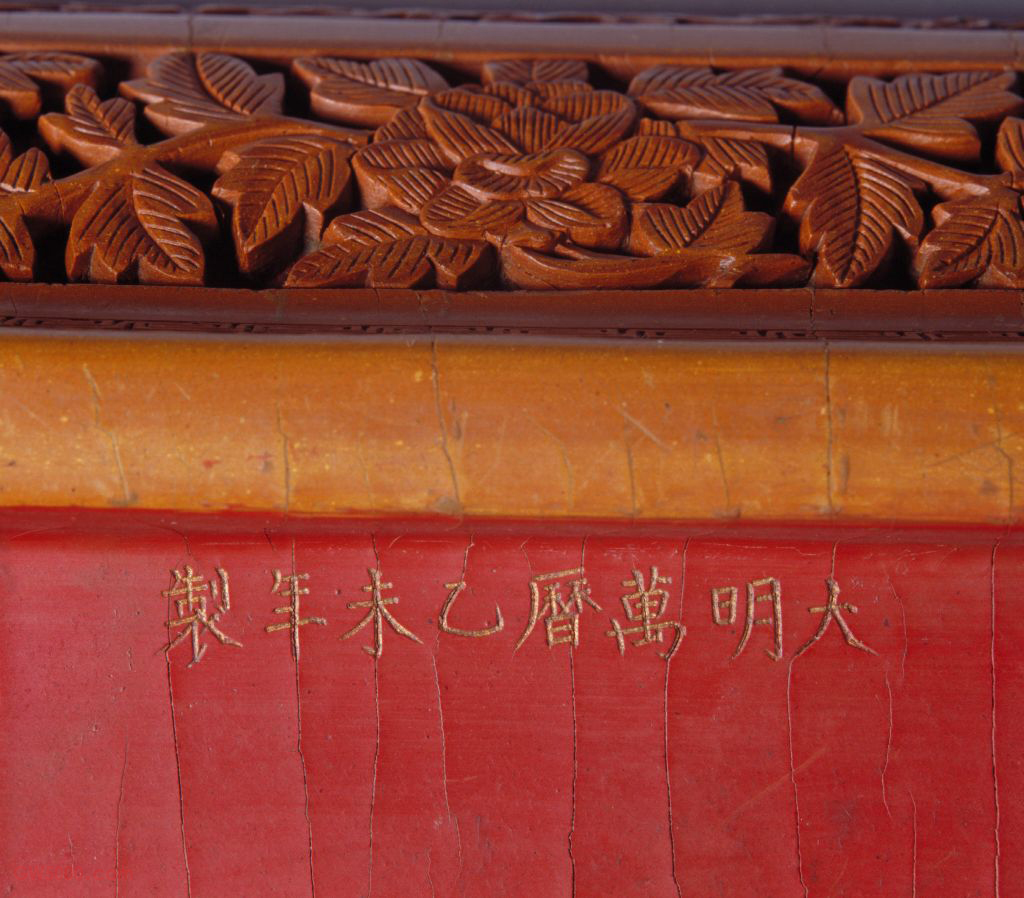 大明萬曆乙未年製